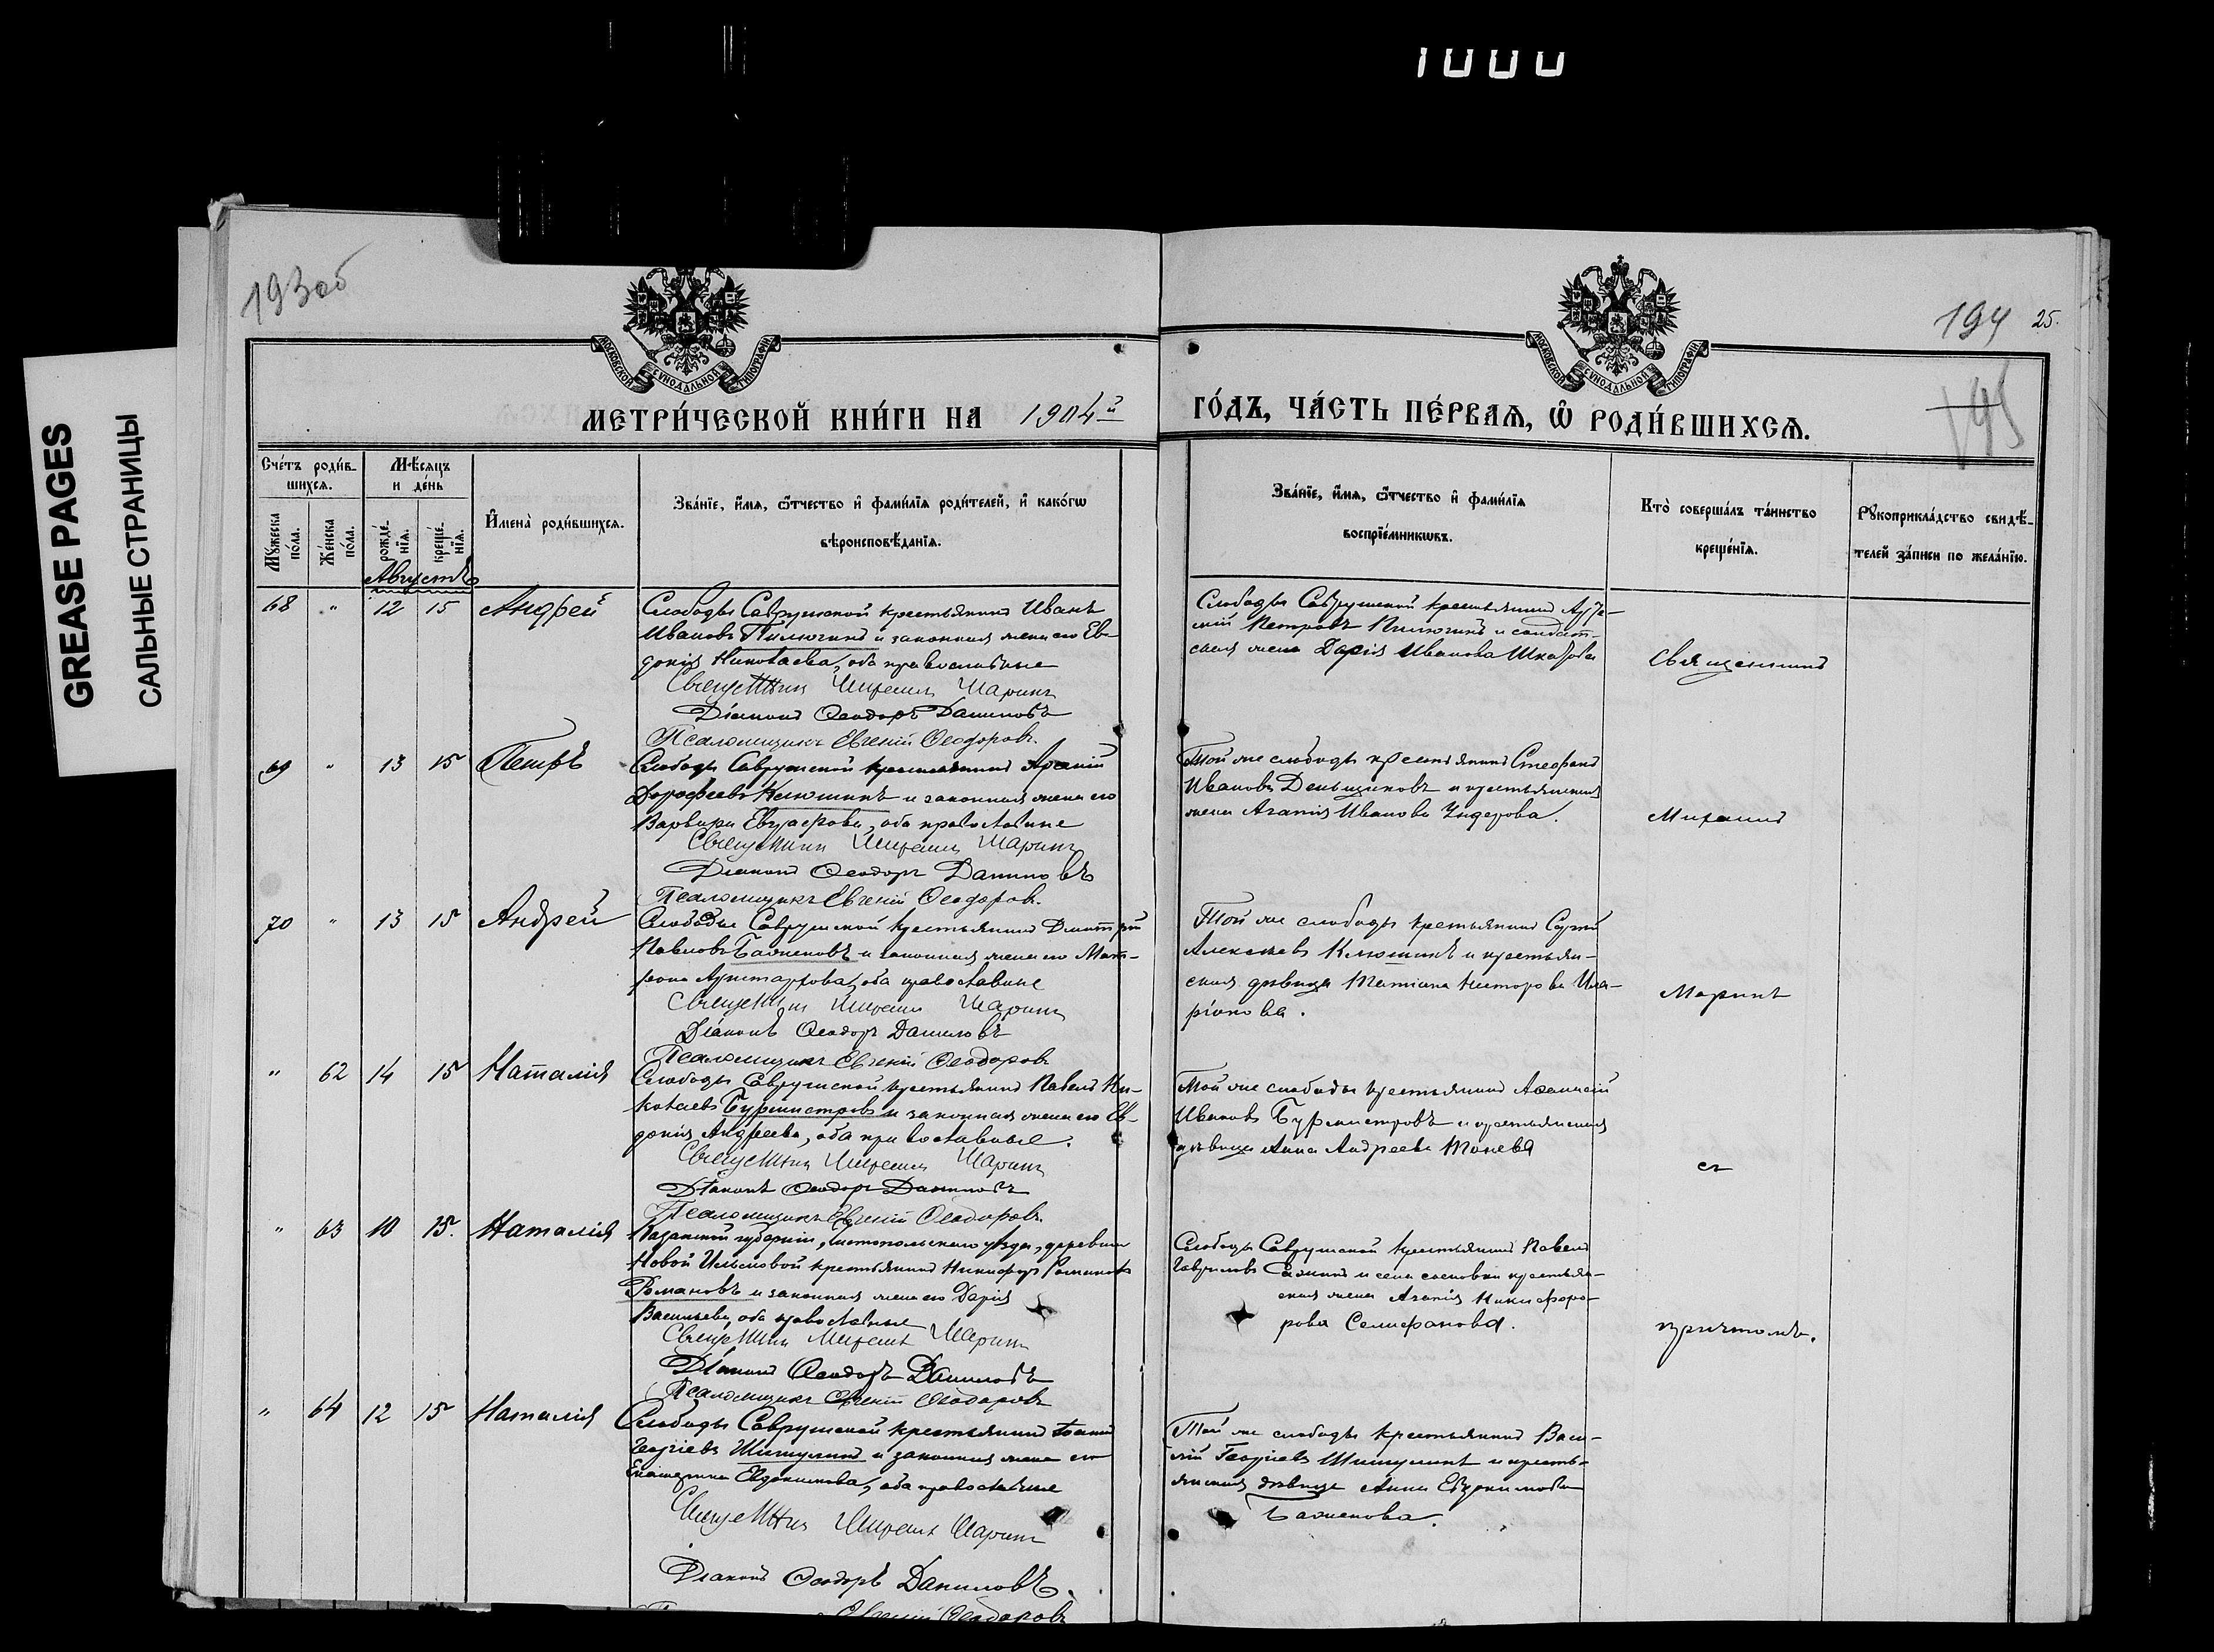 1000
GREASE PAGES
САЛЬНЫЕ СТРАНИЦЫ
193об
194 25.
195
МОСКОВСКОЙ СУНОДАЛЬНОЙ ТИПОГРАФІИ
МОСКОВСКОЙ СУНОДАЛЬНОЙ ТИПОГРАФІИ
МЕТРИ́ЧЕСКОЙ КНИ́ГИ НА 1904й
ГО́ДЪ, ЧА́СТЬ ПЕ́РВАѦ, Ѿ РОДИ́ВШИХСѦ.
Сче́тъ роди́в-
шихсѧ.
Мꙋжеска по́ла.
Же́нска по́ла.
Мѣ́сѧцъ
и де́нь
рожде́-
нїѧ.
креще́-
нїѧ.
И҆мена̀ роди́вшихсѧ.
Зва́нїе, и҆́мѧ, ѻ҆́тчество и҆ фами́лїѧ роди́телей, и҆ како́гѡ
вѣроисповѣ́данїѧ.
Зва́нїе, и҆́мѧ, ѻ҆́тчество и҆ фами́лїѧ
воспрїе́мникѡвъ.
Кто̀ соверша́лъ та́инство
креще́нїѧ.
Рꙋкоприкла́дство свидѣ́-
телей за́писи по жела́нїю.
Августъ
68 " 12 15 Андрей
Слободы Саврушской крестьянинъ Иванъ
Ивановъ Пилюгинъ и законная жена его Ев-
докія Николаева, оба православные
Священникъ Михаилъ Маринъ
Діаконъ Ѳеодоръ Даниловъ
Псаломщикъ Евгеній Ѳеодоровъ.
Слободы Саврушской крестьянинъ
Петровъ Пилюгинъ и солдат-
ская жена Дарія Иванова
Священникъ
69 " 13 15 Петръ
Слободы Саврушской крестьянинъ
Дорофеевъ Клюшинъ и законная жена его
Варвара, оба православные
Священникъ Михаилъ Маринъ
Діаконъ Ѳеодоръ Даниловъ
Псаломщикъ Евгеній Ѳеодоровъ.
Той же слободы крестьянинъ Стефанъ
Ивановъ Деньщиковъ и крестьянская
жена Агапія Иванова
Михаилъ
70 " 13 15 Андрей
Слободы Саврушской крестьянинъ Димитрій
Павловъ Баженовъ и законная жена его Мат-
рона Аристархова, оба православные
Священникъ Михаилъ Маринъ
Діаконъ Ѳеодоръ Даниловъ
Псаломщикъ Евгеній Ѳеодоровъ
Той же слободы крестьянинъ Сергій
Алексѣевъ Клюшинъ и крестьян-
ская дѣвица Татіана Несторова Ила-
ріонова.
Маринъ
" 62 14 15 Наталія
Слободы Саврушской крестьянинъ Павелъ Ни-
колаевъ Бурмистровъ и законная жена его Ев-
докія Андреева, оба православные.
Священникъ Михаилъ Маринъ
Діаконъ Ѳеодоръ Даниловъ
Псаломщикъ Евгеній Ѳеодоровъ.
Той же слободы крестьянинъ Аѳанасій
Ивановъ Бурмистровъ и крестьянская
дѣвица Анна Андреева
съ
" 63 10 15. Наталія
Казанской губерніи, Чистопольскаго уѣзда, деревни
Новой Ильмовой крестьянинъ Никифоръ
Романовъ и законная жена его Дарія
Васильева, оба православные
Священникъ Михаилъ Маринъ
Діаконъ Ѳеодоръ Даниловъ
Псаломщикъ Евгеній Ѳеодоровъ
Слободы Саврушской крестьянинъ Павелъ
Гавриловъ и села крестьян-
ская жена Агапія Никифоро-
рова Селифанова.
причтомъ.
" 64 12 15 Наталія
Слободы Саврушской крестьянинъ
Георгіевъ Шишулинъ и законная жена его
Екатерина Евдокимова, оба православные
Священникъ Михаилъ Маринъ
Діаконъ Ѳеодоръ Даниловъ.
Евгеній Ѳеодоровъ
Той же слободы крестьянинъ Васи-
лій Георгіевъ Шишулинъ и кресть-
янская дѣвица Анна Евдокимова
Баженова.